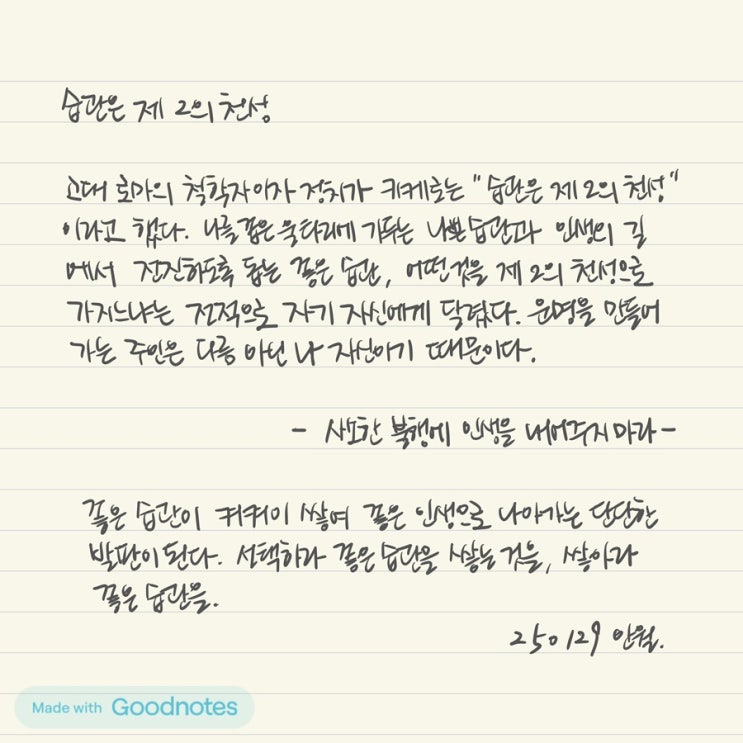 습관은 제 2의 천성
고대 로마의 철학자이자 정치가 키케로는 "습관은 제 2의 천성"
이라고 했다. 나를 좁은 울타리에 가두는 나쁜 습관과 인생의 길
에서 전진하도록 돕는 좋은 습관, 어떤것을 제 2의 천성으로
가지느냐는 전적으로 자기 자신에게 달렸다. 운명을 만들어
가는 주인은 다름 아닌 나 자신이기 때문이다.
- 사소한 불행에 인생을 내어주지마라 -
좋은 습관이 켜켜이 쌓여 좋은 인생으로 나아가는 단단한
발판이 된다. 선택하라 좋은 습관을 쌓는 것을, 쌓아라
좋은 습관을.
250129 안월.
Made with Goodnotes